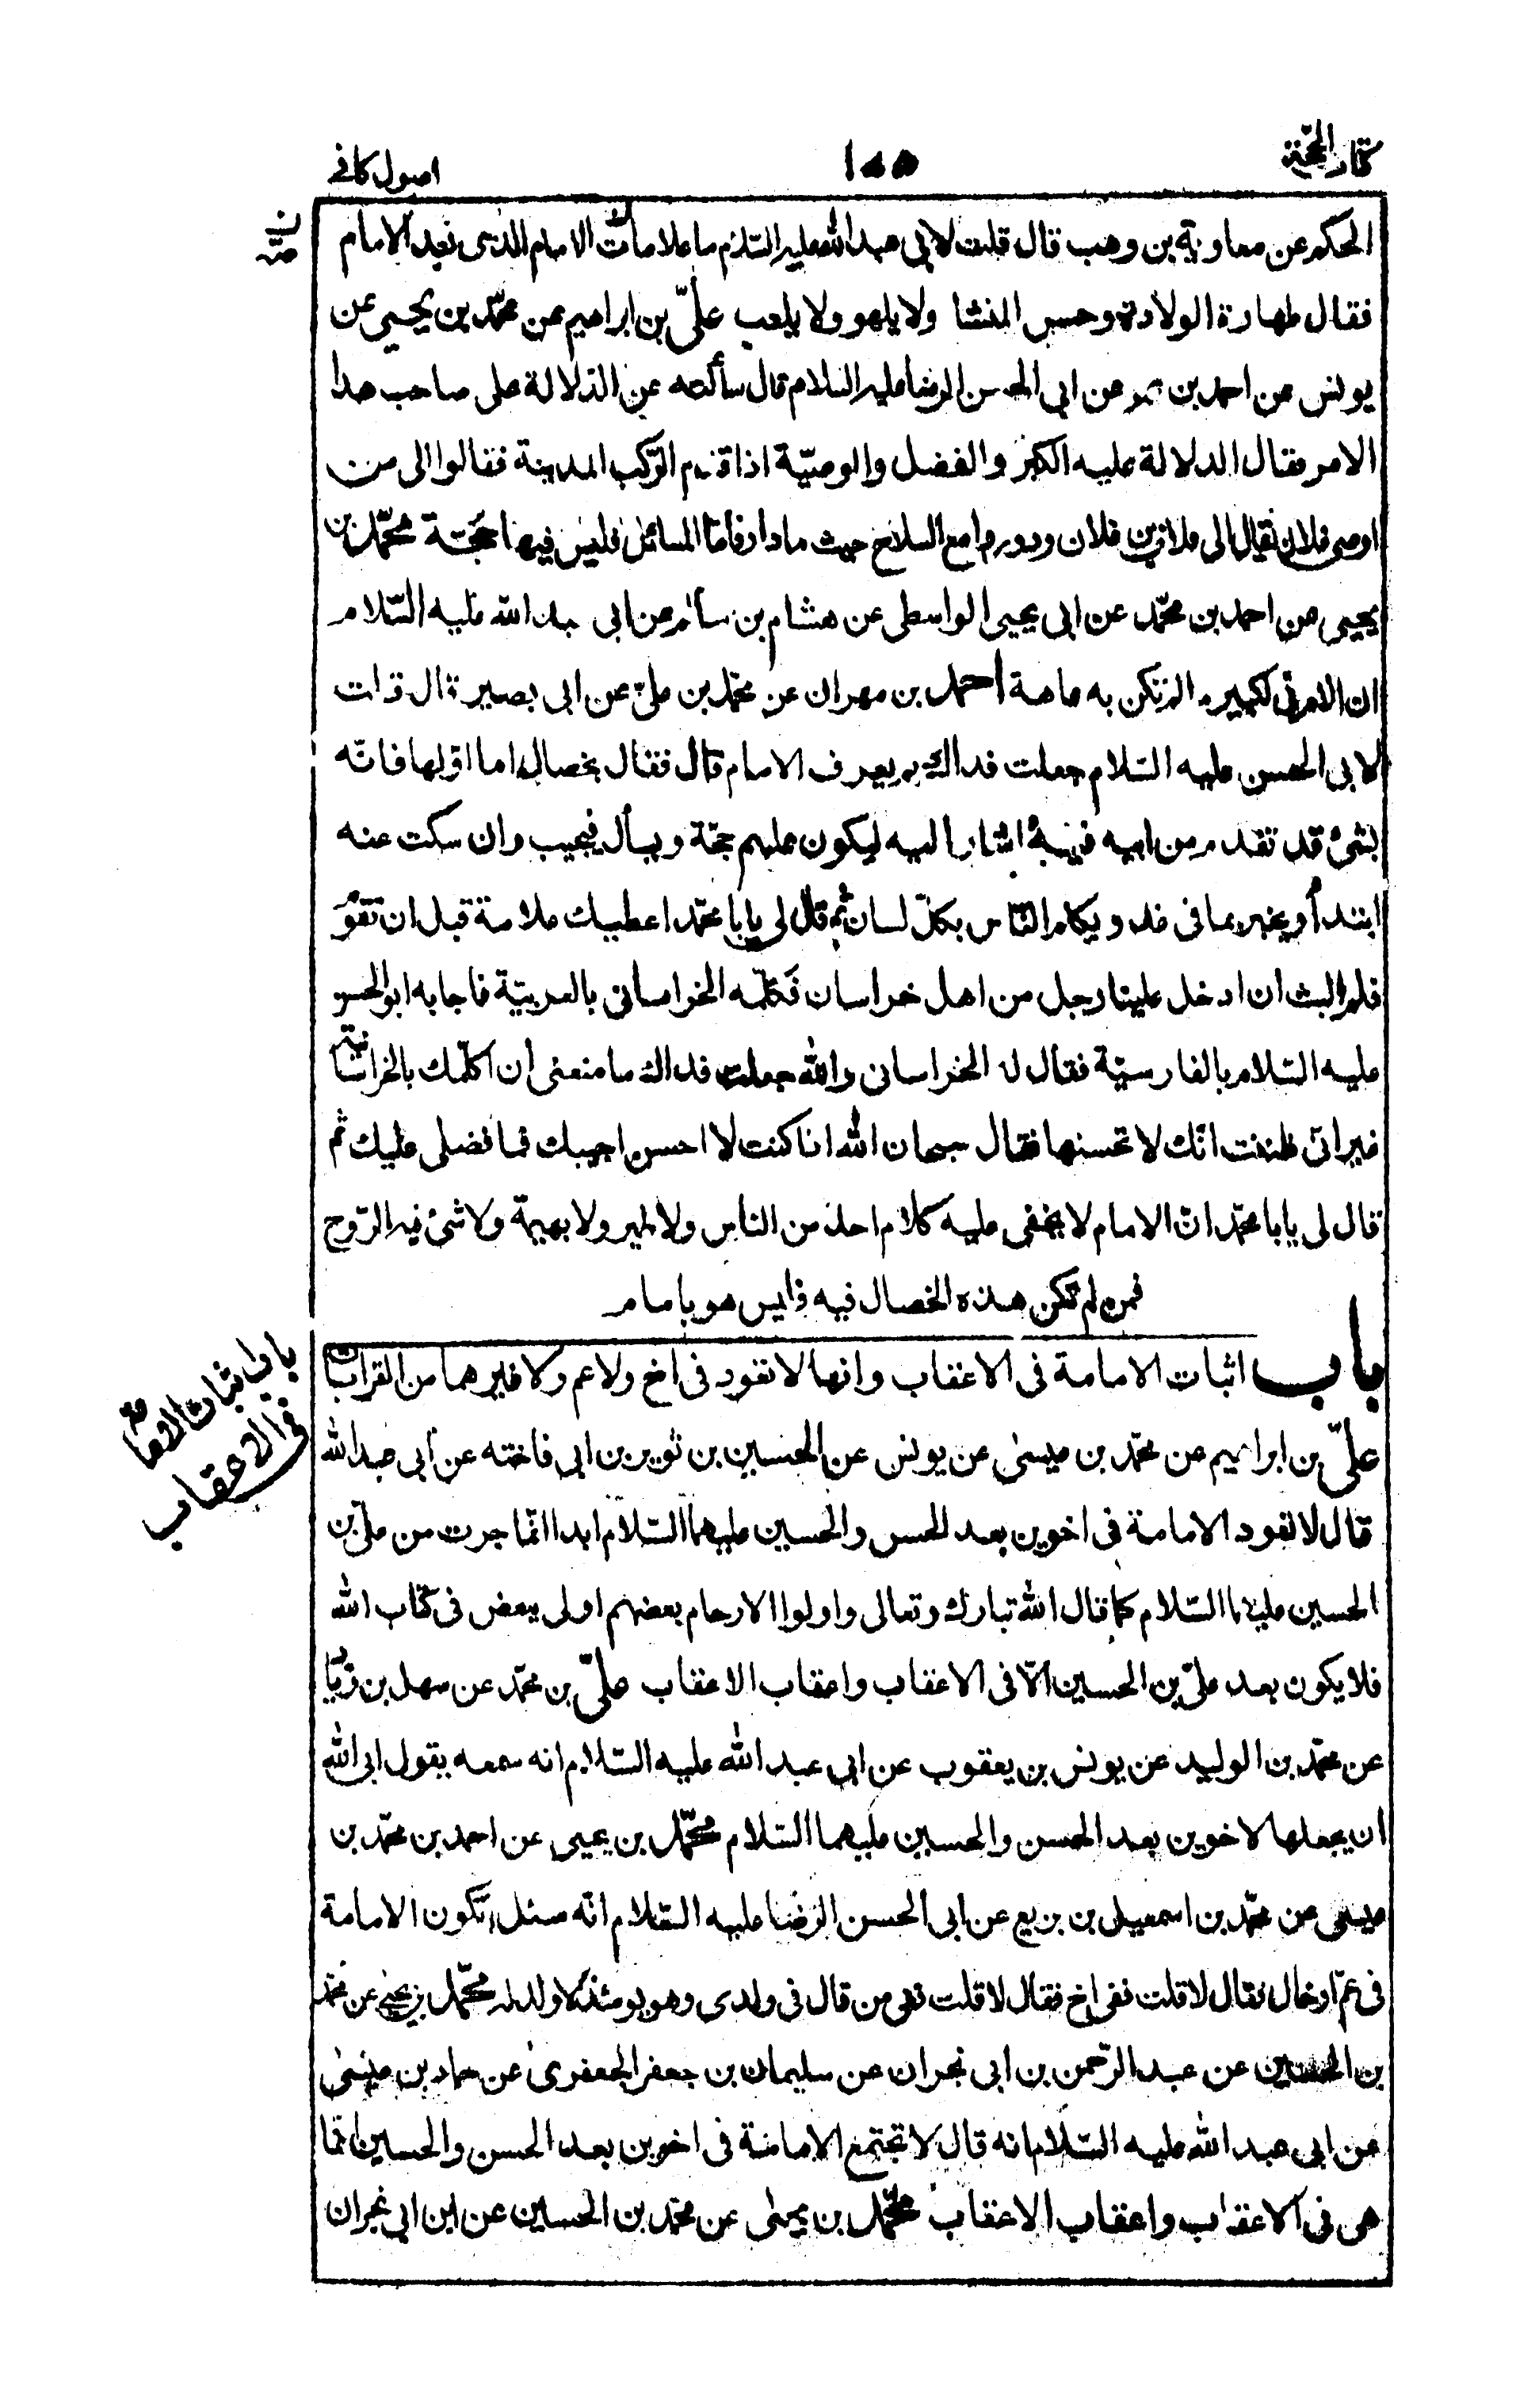 كتاب الحجة
١٥٥
اصول كافى
الحكم عن معاوية بن وهب قال قلت لابى عبد الله عليه السّلام ما علامات الامام الذى بعد الامام
فقال طهارة الولادة وحسن المنشا ولا يلهو ولا يلعب علىّ بن ابراهيم عن محمّد بن يحيى عن
يونس عن احمد بن عمر عن ابى الحسن الرضا عليه السلام قال سألته عن الدّلالة على صاحب هذا
الامر فقال الدلالة عليه الكبر والفضل والوصيّة اذا قدم الرّكب المدينة فقالوا الى من
اوصى فلان فقيل الى فلان بن فلان ودوروا مع السلاح حيث ما دار فامّا المسائل فليس فيها حجّة محمّد بن
يحيى عن احمد بن محمّد عن ابى يحيى الواسطى عن هشام بن سالم عن ابى عبد الله عليه السّلام
ان الامر فى الكبير ما لم تكن به عاهة أحمد بن مهران عن محمّد بن علىّ عن ابى بصير قال قلت
لابى الحسن عليه السّلام جعلت فداك بم يعرف الامام قال فقال بخصال اما اوّلها فانّه
بشئ قد تقدم من ابيه فيه باشارة اليه ليكون عليهم حجّة ويسأل فيجيب وان سكت عنه
ابتدأ ويخبر بما فى غد ويكلم النّاس بكلّ لسان ثم قال لى يابا محمّد اعطيك علامة قبل ان تقوم
فلم البث ان ادخل علينا رجل من اهل خراسان فكلّمه الخراسانى بالعربيّة فاجابه ابو الحسن
عليه السّلام بالفارسيّة فقال له الخراسانى والله جعلت فداك ما منعنى أن اكلّمك بالخراسانية
غير انّى ظننت انّك لا تحسنها فقال سبحان الله اذا كنت لا احسن اجيبك فما فضلى عليك ثم
قال لى يابا محمّد انّ الامام لا يخفى عليه كلام احد من الناس ولا طير ولا بهيمة ولا شئ فيه الرّوح
فمن لم تكن هذه الخصال فيه فليس هو بامام
باب اثبات الامامة فى الاعقاب وانها لا تعود فى اخ ولا عم ولا غيرهما من القرابات
باب اثبات الامامة
فى الاعقاب
علىّ بن ابراهيم عن محمّد بن عيسى عن يونس عن الحسين بن ثوير بن ابى فاخته عن أبى عبد الله
قال لا تعود الامامة فى اخوين بعد الحسن والحسين عليهما السّلام ابدا انّما جرت من علىّ بن
الحسين عليهما السّلام كما قال الله تبارك وتعالى واولوا الارحام بعضهم اولى ببعض فى كتاب الله
فلا يكون بعد علىّ بن الحسين الّا فى الاعقاب واعقاب الاعقاب علىّ بن محمّد عن سهل بن زياد
عن محمّد بن الوليد عن يونس بن يعقوب عن ابى عبد الله عليه السّلام انه سمعه يقول ابى الله
ان يجعلها لاخوين بعد الحسن والحسين عليهما السّلام محمّد بن يحيى عن احمد بن محمّد بن
عيسى عن محمّد بن اسمعيل بن بزيع عن ابى الحسن الرّضا عليه السّلام انّه سئل أتكون الامامة
فى عمّ او خال فقال لا قلت ففى اخ فقال لا قلت ففى من قال فى ولدى وهو يومئذ لا ولد له محمّد بن يحيى عن محمّد
بن الحسين عن عبد الرّحمن بن ابى نجران عن سليمان بن جعفر الجعفرى عن حماد بن عيسى
عن ابى عبد الله عليه السّلام انه قال لا تجتمع الامامة فى اخوين بعد الحسن والحسين انّما
هى فى الاعقاب واعقاب الاعقاب محمّد بن يحيى عن محمّد بن الحسين عن ابن ابى نجران